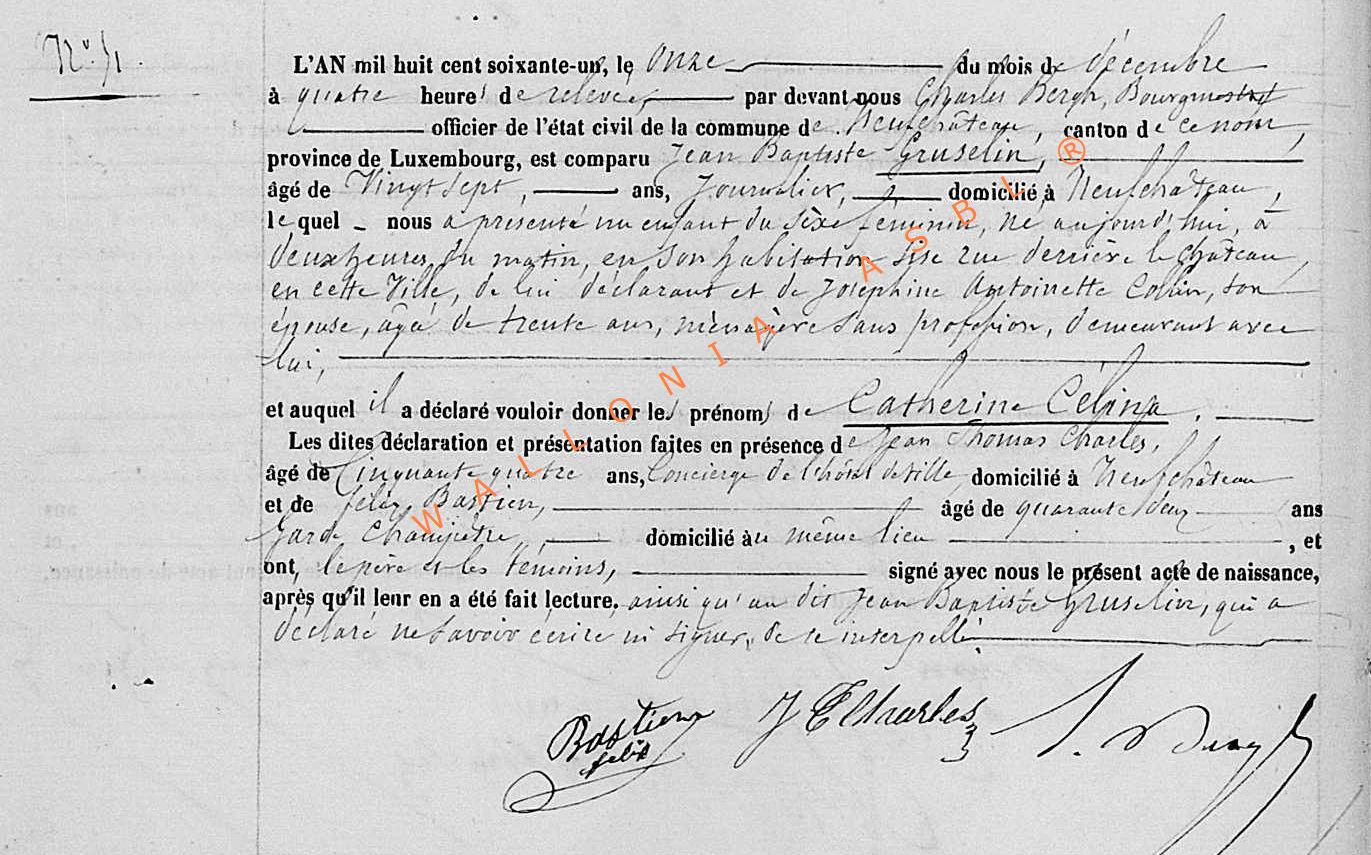 N° 51.
L'AN mil huit cent soixante-un, le onze du mois de décembre
à quatre heures de relevée, par devant nous Charles Bergh, Bourgmestre
officier de l'état civil de la commune de Neufchâteau, canton de ce nom,
province de Luxembourg, est comparu Jean Baptiste Gruselin,
âgé de Vingt sept, ans, Journalier, domicilié à Neufchâteau,
le quel nous a présenté un enfant du sèxe feminin, né aujourd'hui, à
deux heures, du matin, en son habitation sise rue derrière le Château,
en cette Ville, de lui déclarant et de Joséphine Antoinette Collin, son
épouse, agée de trente ans, ménagère sans profession, demeurant avec
lui,
et auquel il a déclaré vouloir donner les prénoms de Catherine Célina.
Les dites déclaration et présentation faites en présence de Jean Thomas Charles,
âgé de Cinquante quatre ans, Concierge de l'hôtel de Ville, domicilié à Neufchâteau
et de Felix Bastien, âgé de quarante deux ans
Garde Champêtre, domicilié au même lieu, et
ont, le père et les témoins, signé avec nous le présent acte de naissance,
après qu'il leur en a été fait lecture, ainsi qu'au dit Jean Baptiste Gruselin, qui a
déclaré ne savoir écrire ni signer, de ce interpellé.
Bastien
felix
J T Charles
WALLONIA ASBL ®